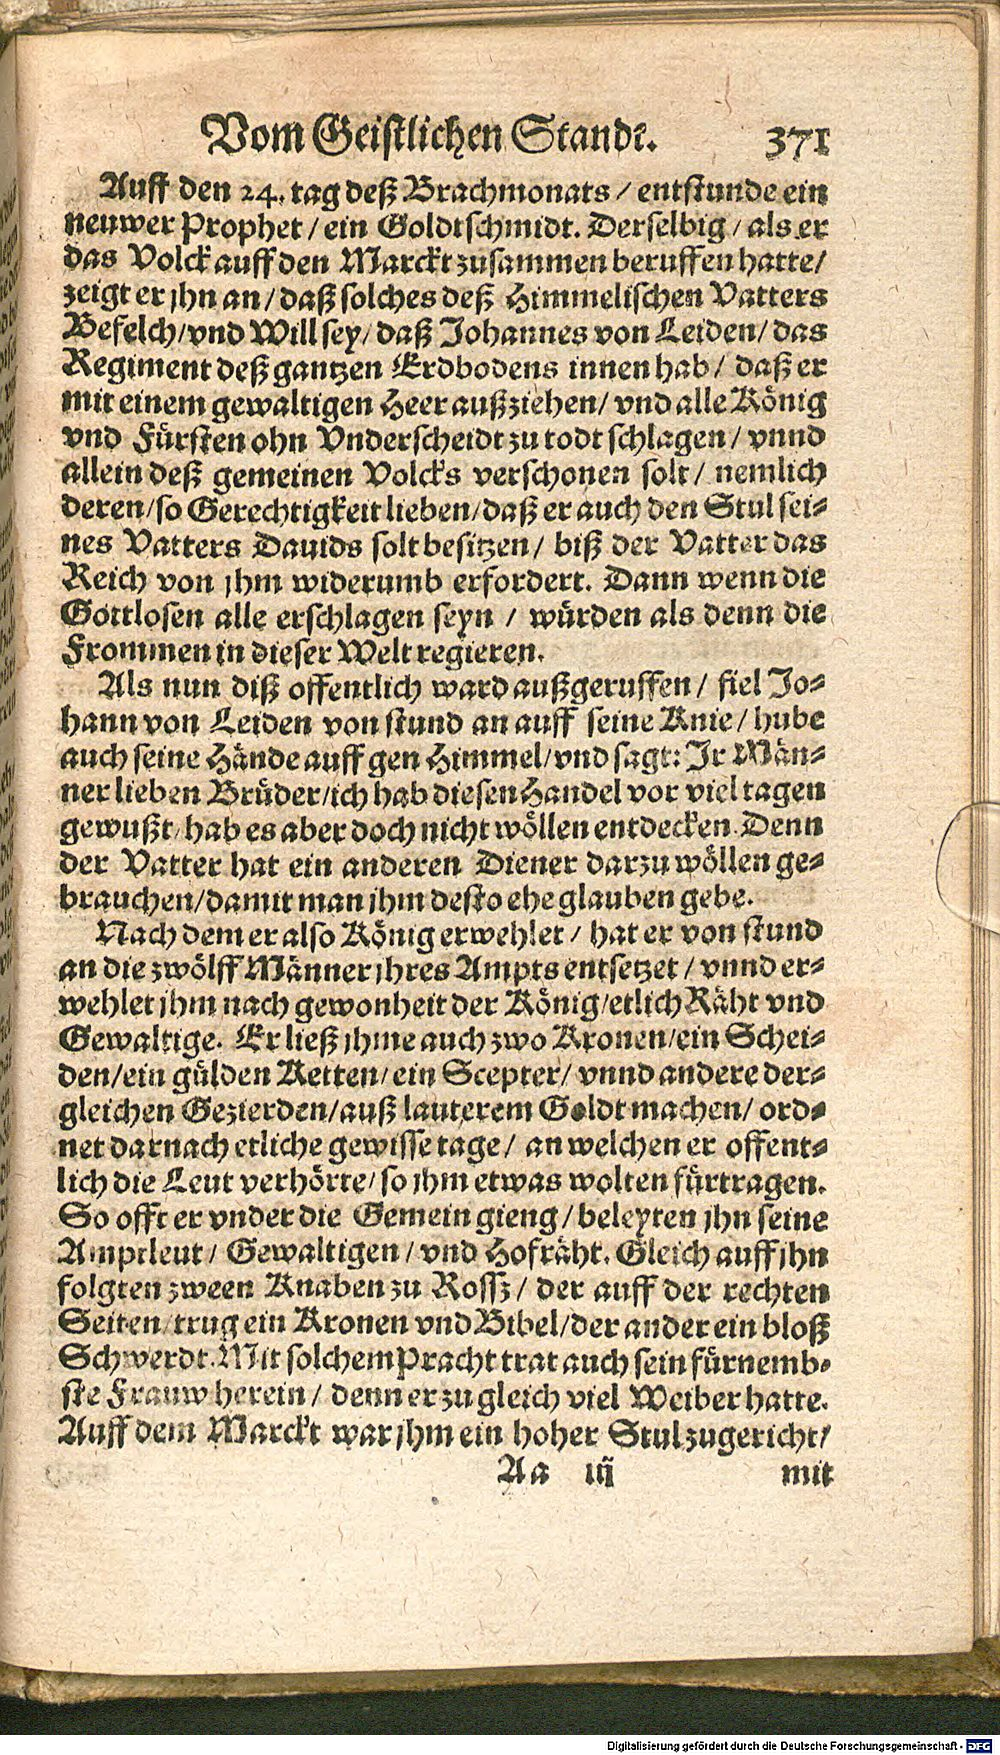 Vom Geistlichen Stande. 371
Auff den 24. tag deß Brachmonats / entstunde ein
neuwer Prophet / ein Goldtschmidt. Derselbig / als er
das Volck auff den Marckt zusammen beruffen hatte /
zeigt er jhn an / daß solches deß Himmelischen Vatters
Befelch / vnd Will sey / daß Johannes von Leiden / das
Regiment deß gantzen Erdbodens innen hab / daß er
mit einem gewaltigen Heer außziehen / vnd alle König
vnd Fürsten ohn Vnderscheidt zu todt schlagen / vnnd
allein deß gemeinen Volcks verschonen solt / nemlich
deren / so Gerechtigkeit lieben / daß er auch den Stul sei-
nes Vatters Dauids solt besitzen / biß der Vatter das
Reich von jhm widerumb erfordert. Dann wenn die
Gottlosen alle erschlagen seyn / würden als denn die
Frommen in dieser Welt regieren.
Als nun diß offentlich ward außgeruffen / fiel Jo-
hann von Leiden von stund an auff seine Knie / hube
auch seine Hände auff gen Himmel / vnd sagt: Jr Män-
ner lieben Brüder / ich hab diesen Handel vor viel tagen
gewußt / hab es aber doch nicht wöllen entdecken. Denn
der Vatter hat ein anderen Diener darzu wöllen ge-
brauchen / damit man jhm desto ehe glauben gebe.
Nach dem er also König erwehlet / hat er von stund
an die zwölff Männer jhres Ampts entsetzet / vnnd er-
wehlet jhm nach gewonheit der König / etlich Räht vnd
Gewaltige. Er ließ jhme auch zwo Kronen / ein Schei-
den / ein gülden Ketten / ein Scepter / vnnd andere der-
gleichen Gezierden / auß lauterem Goldt machen / ord-
net darnach etliche gewisse tage / an welchen er offent-
lich die Leut verhörte / so jhm etwas wolten fürtragen.
So offt er vnder die Gemein gieng / beleyten jhn seine
Amptleut / Gewaltigen / vnd Hofräht. Gleich auff jhn
folgten zween Knaben zu Rossz / der auff der rechten
Seiten / trug ein Kronen vnd Bibel / der ander ein bloß
Schwerdt. Mit solchem Pracht trat auch sein fürnemb-
ste Frauw herein / denn er zu gleich viel Weiber hatte.
Auff dem Marckt war jhm ein hoher Stul zugericht /
Aa iij mit
Digitalisierung gefördert durch die Deutsche Forschungsgemeinschaft - DFG